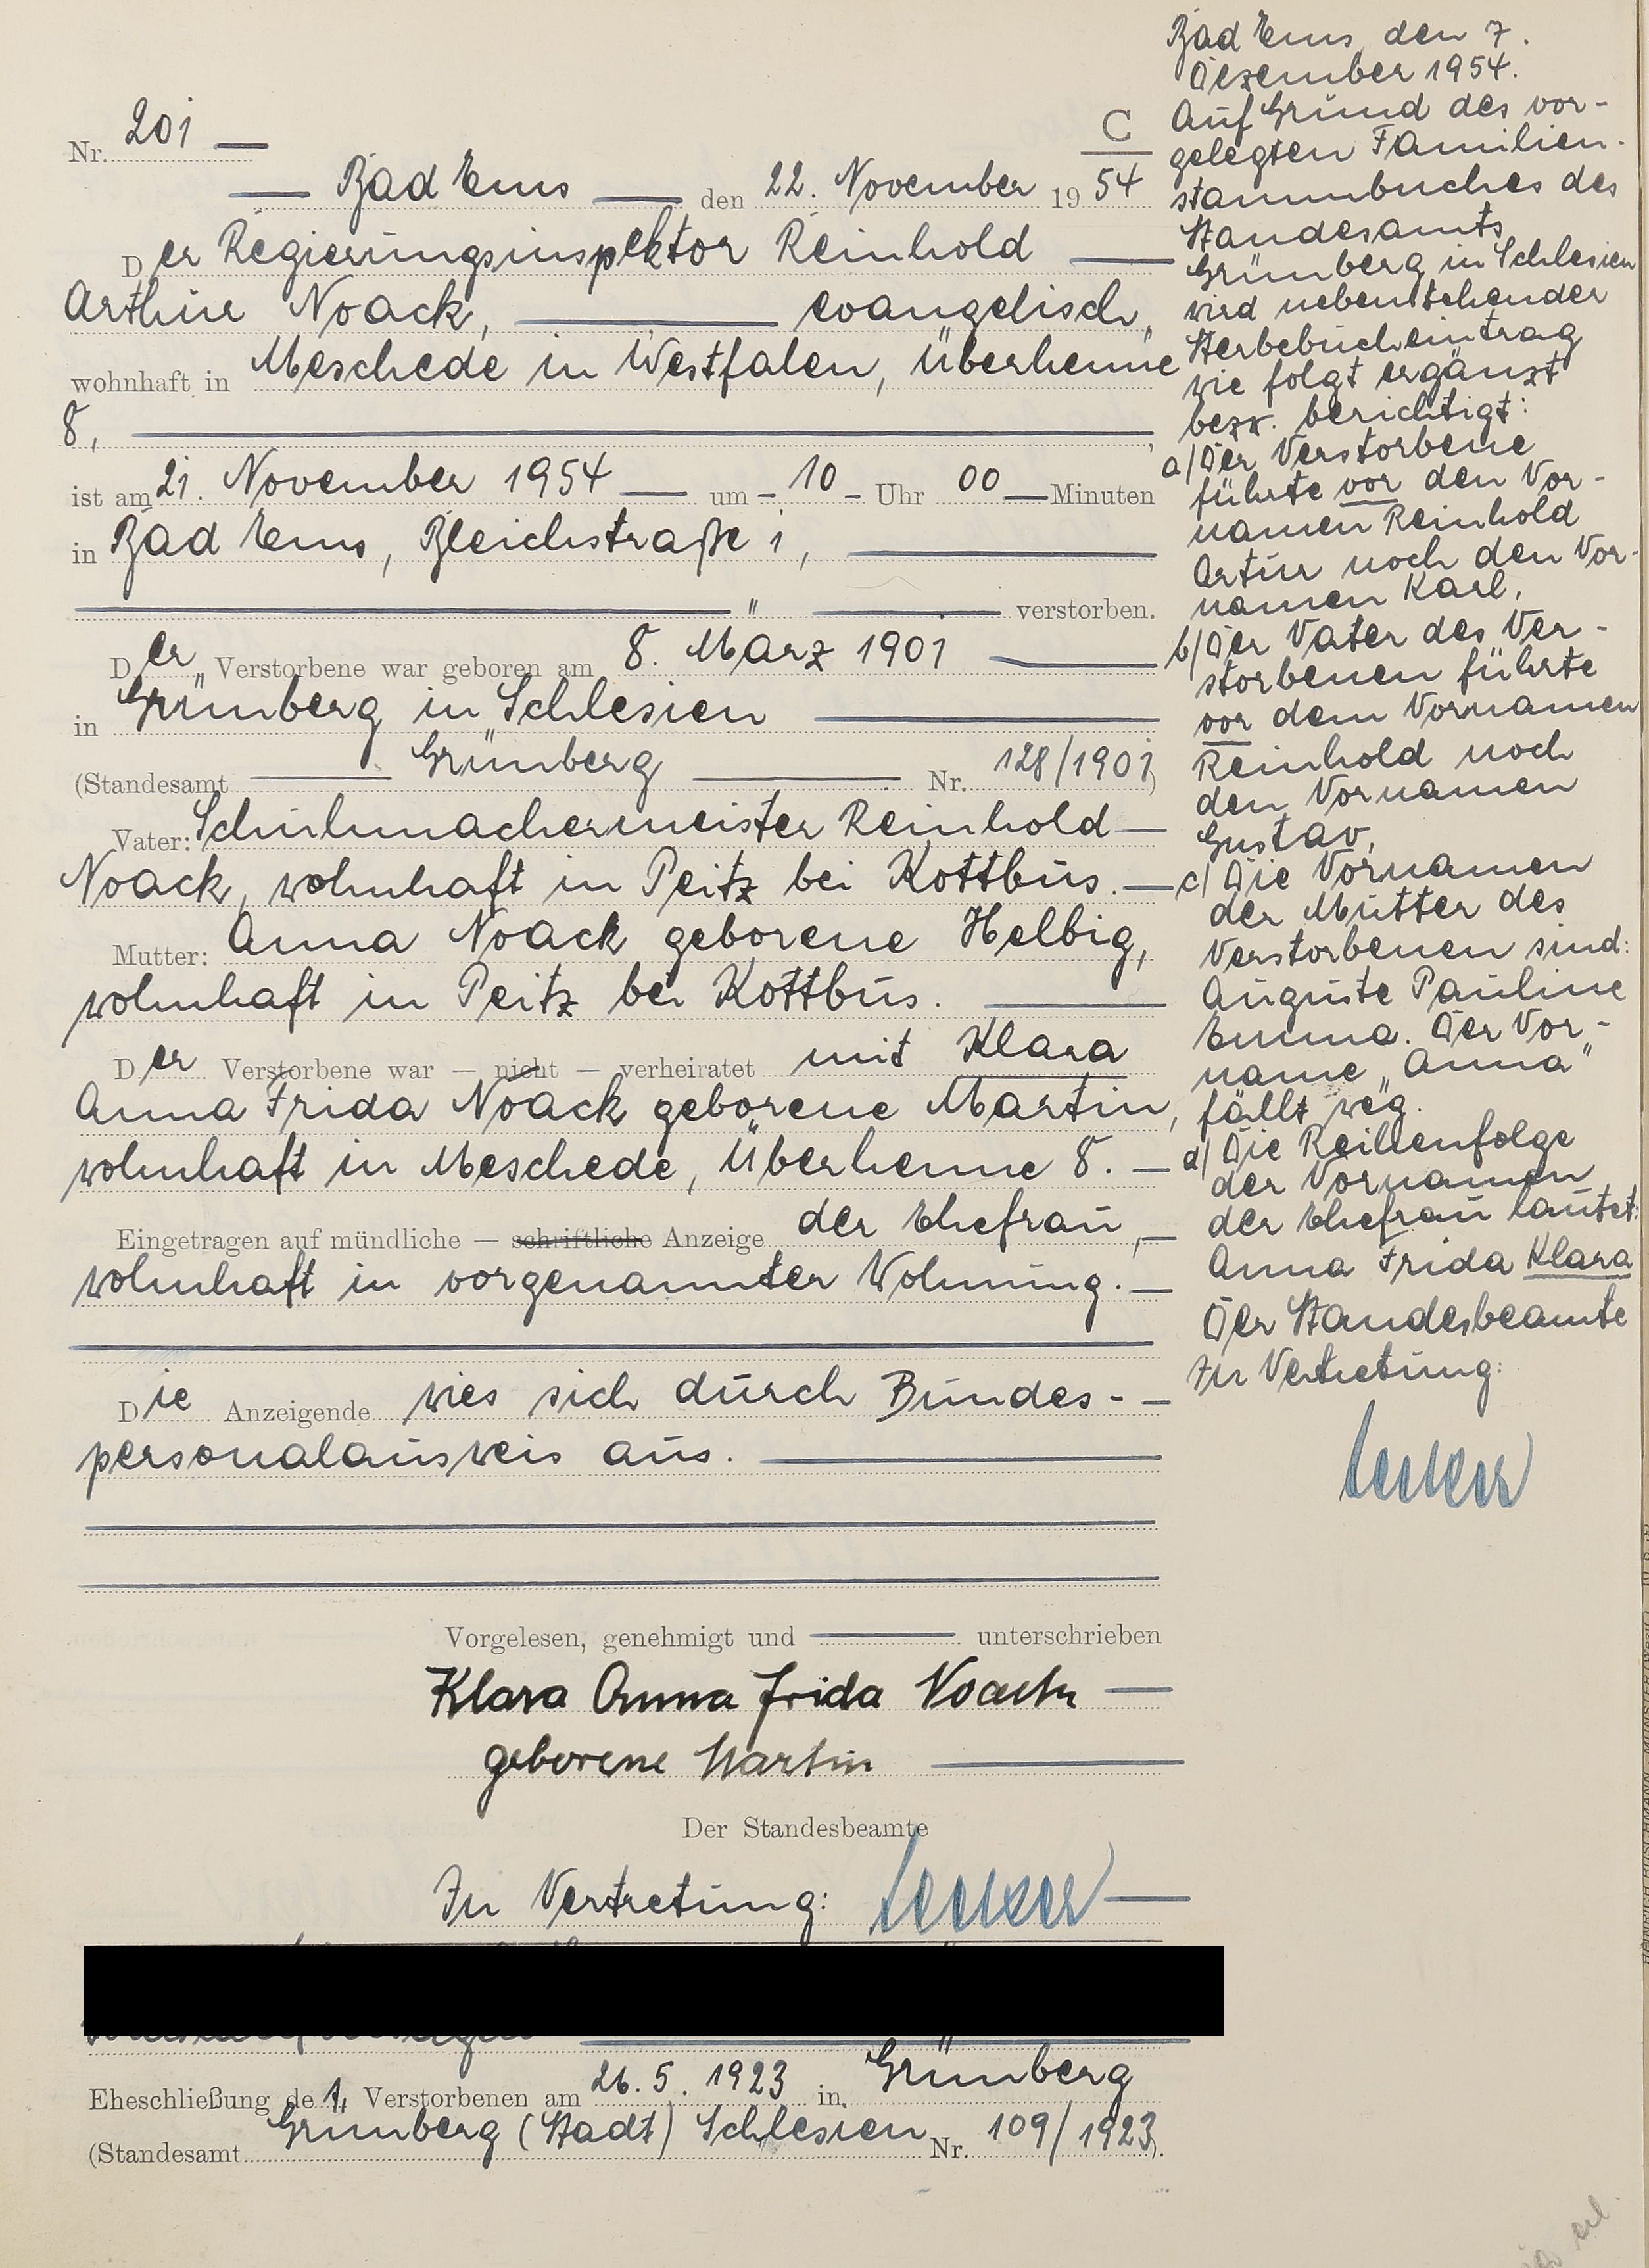 Nr. 201 —
C
— Bad Ems — den 22. November 1954
Der Regierungsinspektor Reinhold —
Arthur Noack, — evangelisch,
wohnhaft in Meschede in Westfalen, Überhenne
8, —
ist am 21. November 1954 — um - 10 - Uhr 00 — Minuten
in Bad Ems, Bleichstraße 1, —
— verstorben.
Der Verstorbene war geboren am 8. März 1901 —
in Grünberg in Schlesien —
(Standesamt — Grünberg — Nr. 128/1901)
Vater: Schuhmachermeister Reinhold —
Noack, wohnhaft in Peitz bei Kottbus. —
Mutter: Anna Noack geborene Helbig,
wohnhaft in Peitz bei Kottbus. —
Der Verstorbene war — nicht — verheiratet mit Klara
Anna Frida Noack geborene Martin,
wohnhaft in Meschede, Überhenne 8. —
Eingetragen auf mündliche — schriftliche Anzeige der Ehefrau, —
wohnhaft in vorgenannter Wohnung. —
Die Anzeigende wies sich durch Bundes- —
personalausweis aus. —
Vorgelesen, genehmigt und — unterschrieben
Klara Anna Frida Noack —
geborene Martin —
Der Standesbeamte
In Vertretung: —
Eheschließung des Verstorbenen am 26.5.1923 in Grünberg
(Standesamt Grünberg (Stadt) Schlesien Nr. 109/1923).
Bad Ems, den 7.
Dezember 1954.
Auf Grund des vor-
gelegten Familien-
stammbuches des
Standesamts
Grünberg in Schlesien
wird nebenstehender
Sterbebucheintrag
wie folgt ergänzt
bezw. berichtigt:
a) Der Verstorbene
führte vor den Vor-
namen Reinhold
Artur noch den Vor-
namen Karl.
b) Der Vater des Ver-
storbenen führte
vor dem Vornamen
Reinhold noch
den Vornamen
Gustav.
c) Die Vornamen
der Mutter des
Verstorbenen sind:
Auguste Pauline
Emma. Der Vor-
name „Anna"
fällt weg.
d) Die Reihenfolge
der Vornamen
der Ehefrau lautet:
Anna Frida Klara
Der Standesbeamte
In Vertretung: